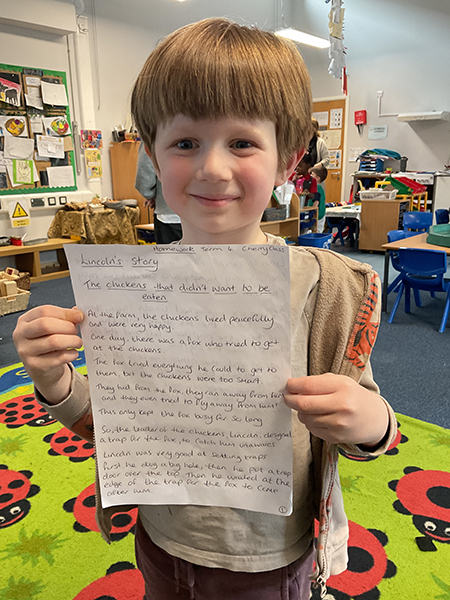 Homework Term 4 Cherry Class
Lincoln's Story
The chickens that didn't want to be
eaten
At the farm, the chickens lived peacefully
and were very happy.
One day, there was a fox who tried to get
at the chickens.
The fox tried everything he could to get
to them but the chickens were too smart
They hid from the fox, they ran away from him
and they even tried to fly away from him!
This only kept the fox busy for so long
So, the leader of the chickens, Lincoln, designed
a trap for the fox, to catch him unawares
Lincoln was very good at setting traps
first he dug a big hole, then he put a trap
door over the top. Then he waited at the
edge of the trap for the fox to come
after him.
1